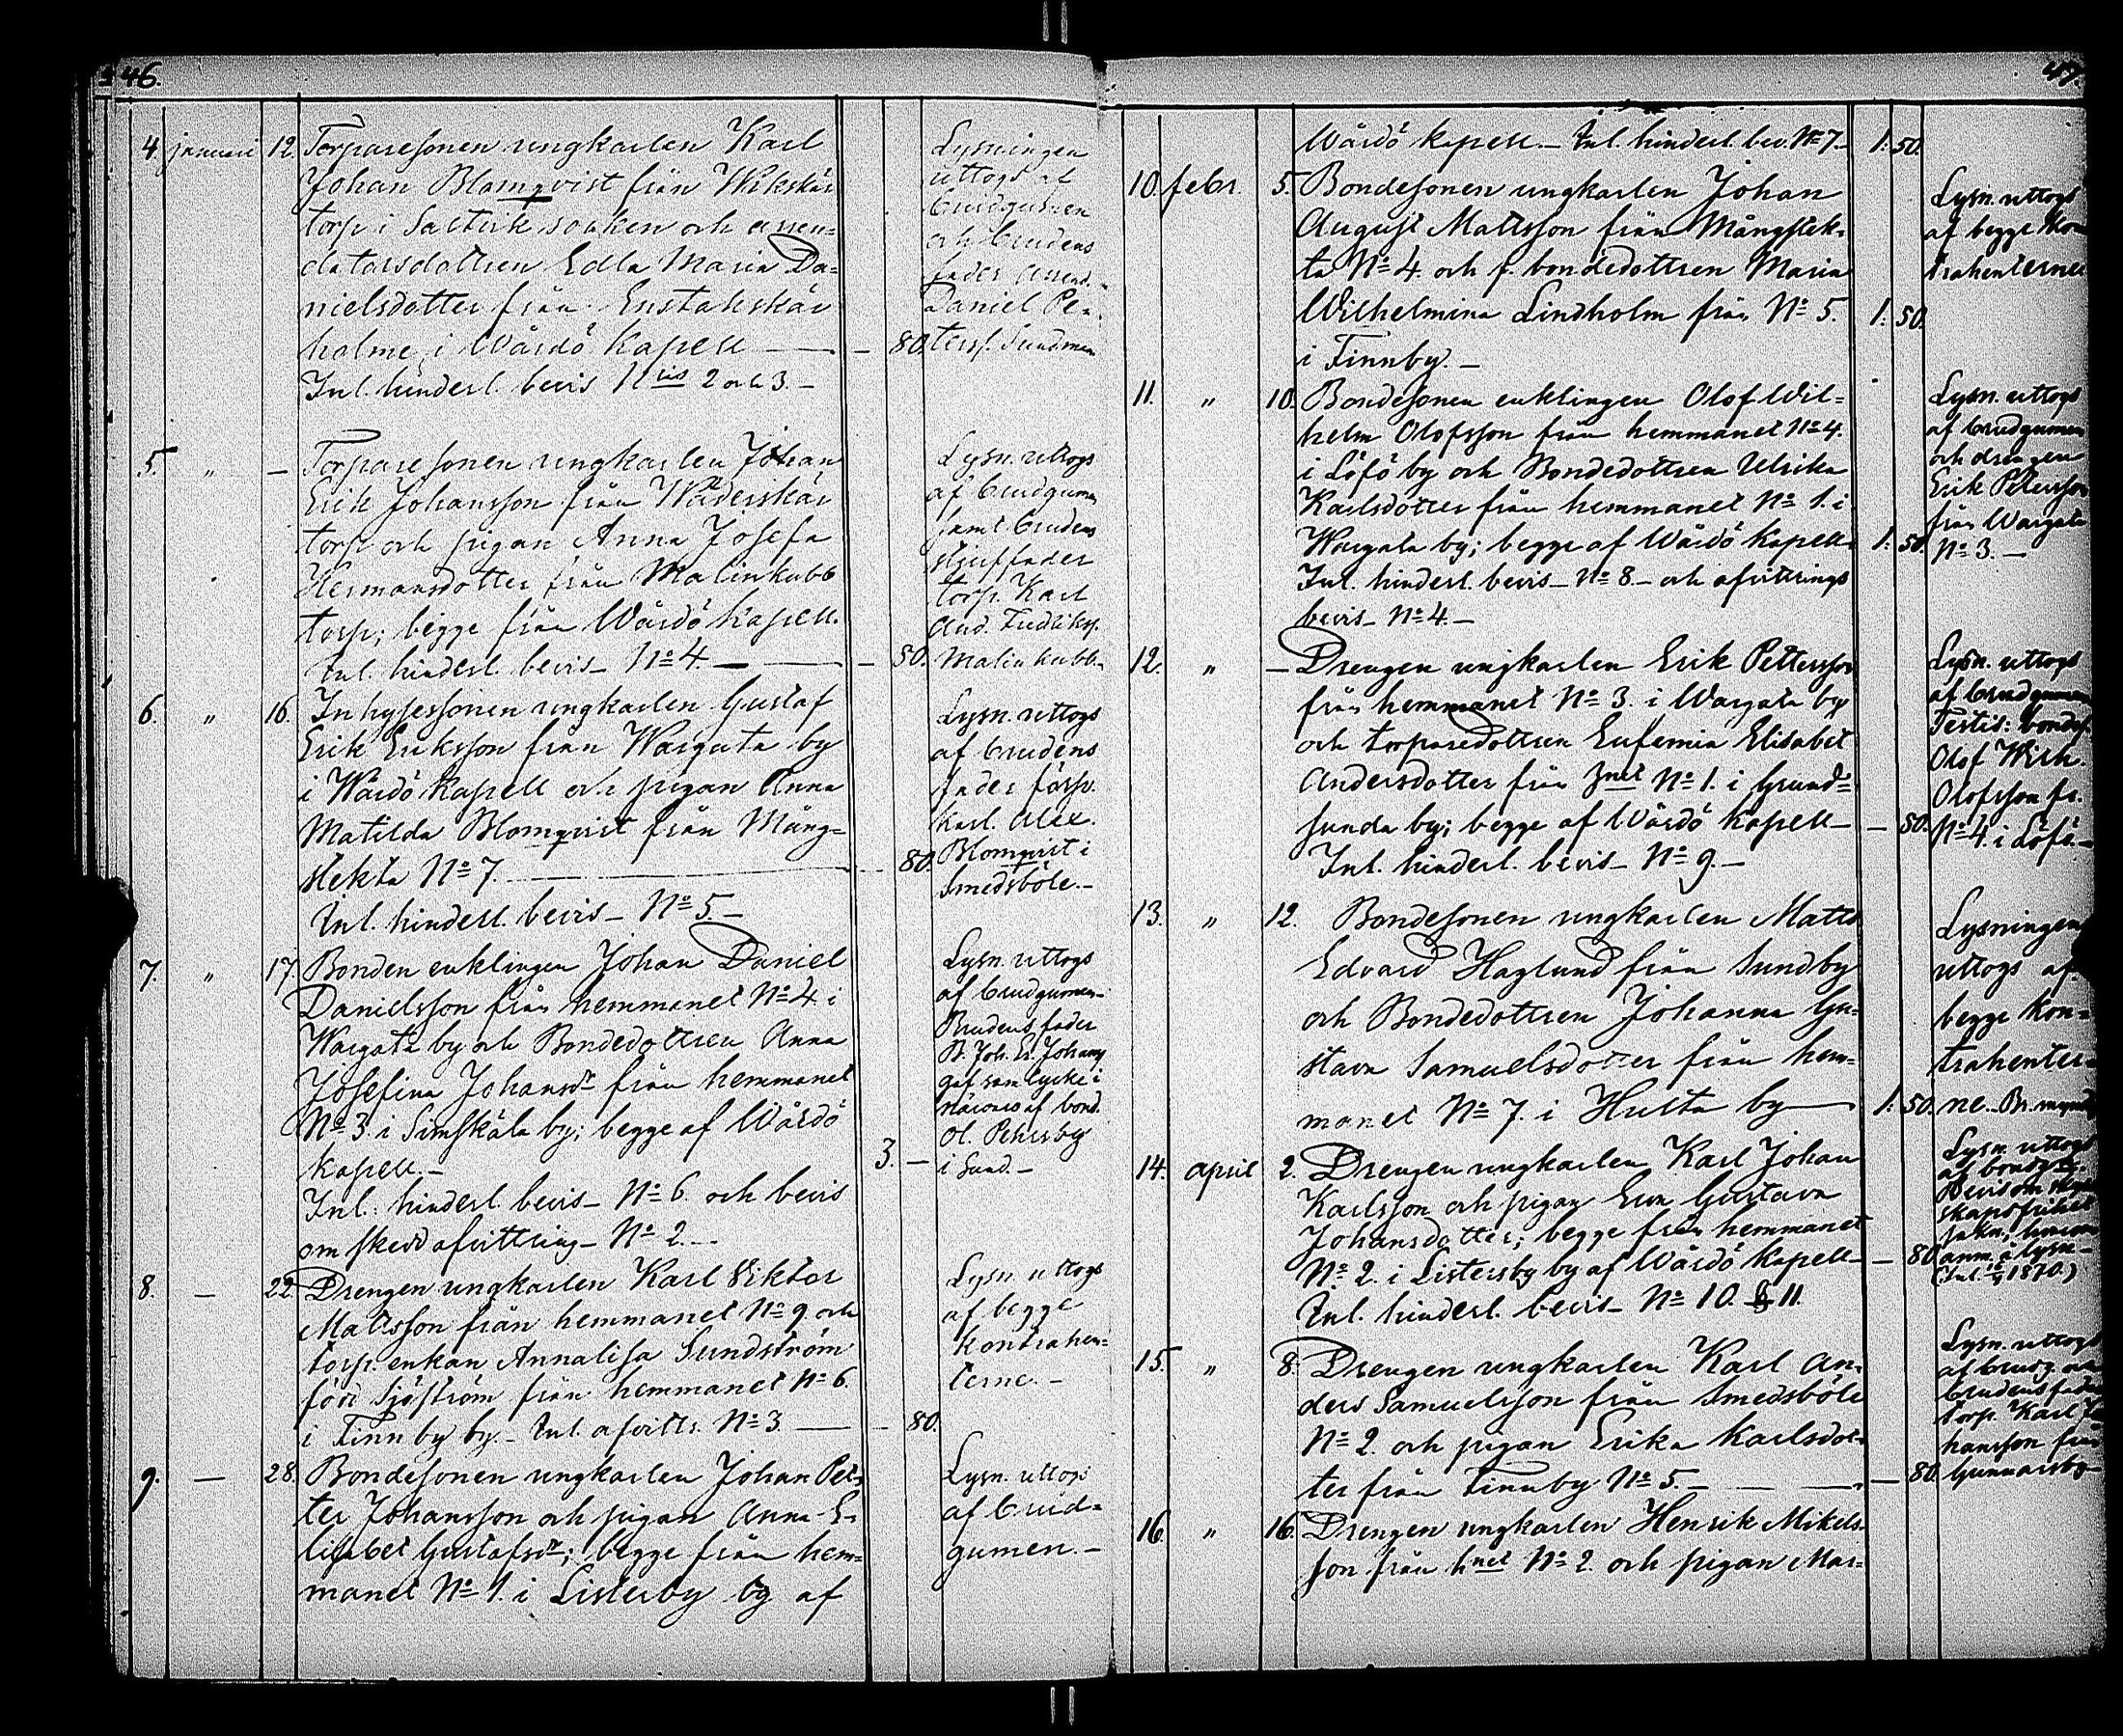 46.
4. januari 12. Torparesonen ungkarlen Karl
Johan Blomqvist från Wikskär
torp i Saltvik socken och arren=
datorsdottren Edla Maria Da=
nielsdotter från Enstakskär
holme, i Wårdö Kapell — — 80.
Inl. hinderl. bevis N:is 2 och 3. —
Lysningen
uttogs af
brudgumen
och brudens
fader Arrend.
Daniel Pet-
terss. Sundman
5. " — Torparesonen ungkarlen Johan
Erik Johansson från Wäderskär
torp och pigan Anna Josefa
Hermansdotter från Malinkubb
torp; begge från Wårdö Kapell.
Inl. hinderl. bevis — No 4. — — 80.
Lysn. uttogs
af brudgumen
samt brudens
stjuffader
torp. Karl
And. Fredriks.
Malinkubb.
6. " 16. Inhysessonen ungkarlen Gustaf
Erik Eriksson från Wargata by
i Wårdö Kapell och pigan Anna
Matilda Blomqvist från Mång=
stekta No 7. — — 80.
Inl. hinderl. bevis — No 5. —
Lysn. uttogs
af brudens
fader
Karl Alex.
Blomqvist i
Smedsböle. —
7. " 17. Bonden enklingen Johan Daniel
Danielsson från hemmanet No 4 i
Wargata by och Bondedottren Anna
Josefina Johansdr från hemmanet
No 3 i Simskäla by; begge af Wårdö
Kapell. — 3. —
Inl. hinderl. bevis — No 6. och bevis
om skedd afvittring — No 2. —
Lysn. uttogs
af brudgumen.
Brudens fader
B. Joh. Er. Johanss.
gaf samtycke i
närvaro af bond.
Ol. Pehrsby
i Sund. —
8. — 22. Drengen ungkarlen Karl Viktor
Mattsson från hemmanet No 9. och
torp. enkan Annalisa Sundström
född Sjöström från hemmanet No 6.
i Finnby by. — Inl. afvittr. No 3 — — 80.
Lysn. uttogs
af begge
kontrahen=
terne. —
9. — 28. Bondesonen ungkarlen Johan Pet=
ter Johansson och pigan Anna E=
lisabet Gustafsdr; begge från hem=
manet No 1. i Listerby by af
Lysn. uttogs
af brud=
gumen. —
47.
Wårdö kapell. — Inl. hinderl. bev. No 7. — 1: 50.
10. febr. 5. Bondesonen ungkarlen Johan
August Mattsson från Mångstek=
ta No 4. och f. bondedottren Maria
Wilhelmina Lindholm från No 5. 1: 50.
i Finnby. —
Lysn. uttogs
af begge kon
trahenterne
11. " 10. Bondesonen enklingen Olof Wil=
helm Olofsson från hemmanet No 4.
i Löfö by och Bondedottren Ulrika
Karlsdotter från hemmanet No 1. i
Wargata by; begge af Wårdö Kapell. 1: 50.
Inl. hinderl. bevis — No 8. — och afvittrings
bevis — No 4. —
Lysn. uttogs
af brudgumen
och drengen
Erik Petersson
från Wargata
No 3. —
12. " — Drengen ungkarlen Erik Pettersson
från hemmanet No 3. i Wargata by
och torparedottren Eufemia Elisabet
Andersdotter från No 1. i Grund=
sunda by; begge af Wårdö kapell — — 80.
Inl. hinderl. bevis — No 9. —
Lysn. uttogs
af brudgumen
Testis: bondes.
Olof Wilh.
Olofsson fr.
No 4. i Löfö. —
13. " 12. Bondesonen ungkarlen Matts
Edvard Haglund från Sundby
och Bondedottren Johanna Gu=
stava Samuelsdotter från hem=
manet No 7. i Hulta by — 1: 50.
Lysningen
uttogs af
begge kon=
trahenter=
ne.
14. april 2. Drengen ungkarlen Karl Johan
Karlsson och pigan Eva Gustava
Johansdotter; begge från hemmanet
No 2. i Listersby by af Wårdö kapell — — 80.
Inl. hinderl. bevis — No 10. & 11.
Lysn. uttogs
af brudg.
Bevis om
skapsfrihet
1870.)
15. " 8. Drengen ungkarlen Karl An=
ders Samuelsson från Smedsböle
No 2. och pigan Erika Karlsdot=
ter från Finnby No 5. — — 80.
Lysn. uttogs
af brudg. och
brudens fader
torp. Karl Jo
hansson från
Gunnarsby —
16. " 16. Drengen ungkarlen Henrik Mikels=
son från hnet No 2. och pigan Mar=